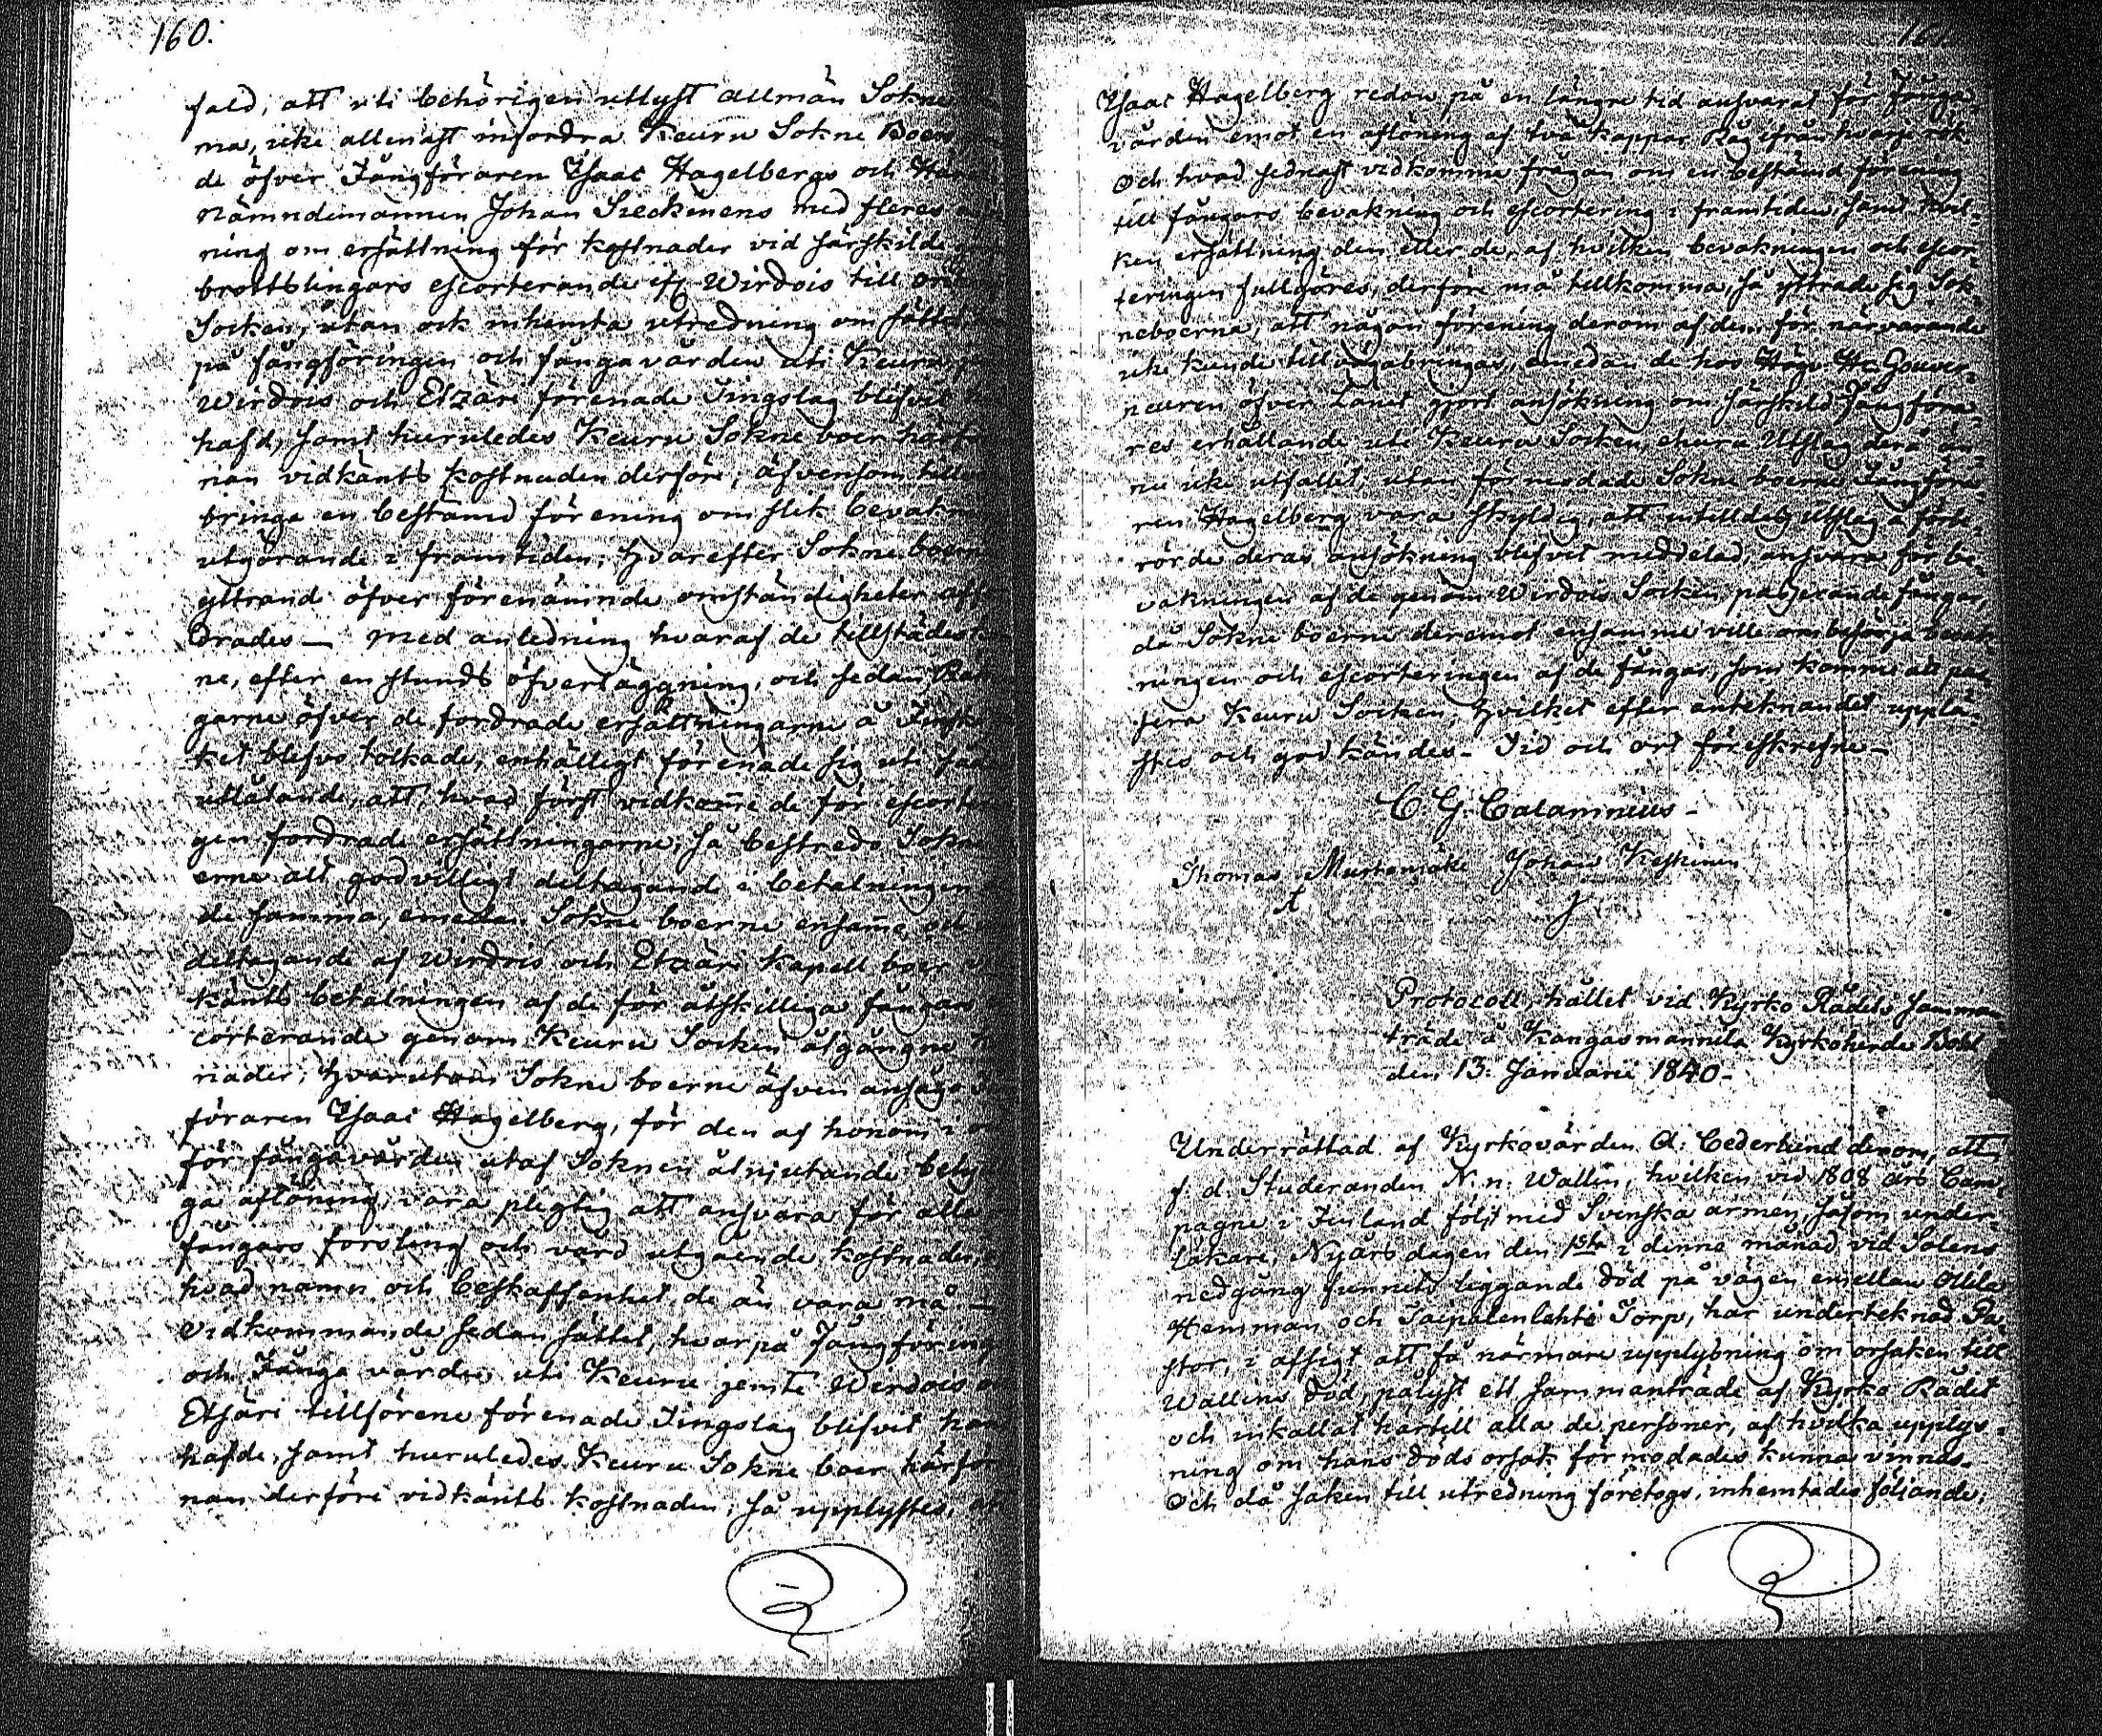 160.
fald, att uti behörigen utlyst allmän Sokne
ma, icke allenast infordra Keuru Sokne Boers
de öfver Fångföraren Isaac Hagelbergs och Hära
Nämndemannen Johan Sieckinens med fleres
ning om ersättning för kostnader vid särskilde
brottslingars escorterande ifr. Wirdois till
Socken, utan ock inhemta utredning om sättet
på fångföringen och fångavården uti Keuru,
Wirdois och Etzäri förenade Tingslag blifvit
hafd, samt huruledes Keuru Sokne boer härför
rian vidkänts kostnaden derföre; äfvensom
bringa en bestämd förening om slik bevakn
utgörande i framtiden; hvarefter Sokne boern
yttrande öfver förenämnde omständigheter
drades — Med anledning hvaraf de tillstädes
ne, efter en stunds öfverläggning, och sedan Räk
garne öfver de fordrade ersättningarne å Finska
ket blefvo tolkade, enhälligt förenade sig uti
utlåtande, att, hvad först vidkom̄e de för escort
gen fordrade ersättningarne, så bestredo Sokn
erne att godvilligt deltagande i betalningen
de samma, emedan Sokne boerne ensam̄e och
deltagande af Wirdois och Etzäri Kapell boer
känts betalningen af de för åtskilliga fångars
corterande genom Keuru Socken åtgångne
nader; hvarutom Sokne boerne äfven ansågo
föraren Isaac Hagelberg, för den af honom
för fångavården utaf Soknen åtnjutande bety
ga aflöning, vara pligtig att ansvara för alle
fångars forsling och vård utgående kostnader,
hvad namn och beskaffenhet de än vara må —
Vidkommande sedan sättet, hvarpå Fångföring
och Fånga vården uti Keuru jemte Wirdois
Etsäri tillförene förenade Tingslag blifvit han
hafde, samt huruledes Keuru Sokne boer härför
nan derföre vidkänts kostnaden; så upplystes, at
Isaac Hagelberg redan på en längre tid ansvarat för Fånga
vården emot en aflöning af två kappar Råg ifrån hvarje rök
Och hvad sednast vidkomme frågan om en bestämd förening
till fångars bevakning och escortering i framtiden, samt hvil-
ken ersättning den eller de, af hvilken bevakningen och escor-
teringen fullgöres, derföre må tillkomma, så yttrade sig Sok-
neboerna, att någon förening derom af dem för närvarande
icke kunde tillvägabringas, emedan de hos Högv. Hr Gouver-
neuren öfver Länet gjort ansökning om särskild Fångföra-
res erhållande uti Keuru Socken, ehuru Utslag derå än-
nu icke utfallit; utan förmodade Sokne boerne Fångföra-
ren Hagelberg vara skyldig, att intilldess Utslag å förbe-
rörde deras ansökning blifvit meddelad, ansvara för be-
vakningen af de genom Wirdois Socken passerande fångar,
då Sokne boerne deremot ensamme ville ombesörja bevak
ningen och escorteringen af de fångar, som komme att pas
sera Keuru Socken; hvilket efter anteknandet upplä-
stes och godkändes — Tid och ort föreskrefne —
C. G. Calamnius —
Thomas Mustamäki Johan Keskinen
Protocoll, hållet vid Kyrko Rådets samman-
träde å Kangasmannila Kyrkoherde Bohl
den 13: Januarii 1840 —
Underrättad af Kyrkovärden A: Cederlund derom, att
f. d. Studeranden N. n. Wallin, hvilken vid 1808 års Cam-
pagne i Finland följt med Svenska arméen såsom under-
läkare, Nyårs dagen den 1sta i denna månad vid Solens
nedgång funnits liggande död på vägen emellan Ollila
Hemman och Taipalenlahti Torp, har undertecknad Pa-
stor, i afsigt att få närmare upplysning om orsaken till
Wallins död, pålyst ett sammanträde af Kyrko Rådet
och inkallat härtill alla de personer, af hvilka upplys-
ning om hans döds orsak förmodades kunna vinnas —
Och då saken till utredning företogs, inhemtades följande: